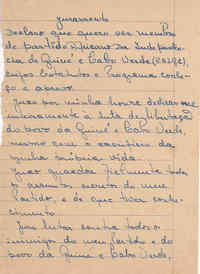 Juramento
Declaro que quero ser membro
do partido Africano da Independên-
cia da Guiné e Cabo Verde (PAIGC),
cujos Estatutos e Programa conhe-
ço e aprovo.
Juro por minha honra dedicar-me
inteiramente à luta de libertação
do povo da Guiné e Cabo Verde,
mesmo com o sacrifício da
minha própria vida.
Juro guardar fielmente todo
o assunto secreto do meu
Partido, e de que tiver conhe-
cimento.
Juro lutar contra todos os
inimigos do meu partido e do
povo da Guiné e Cabo Verde,